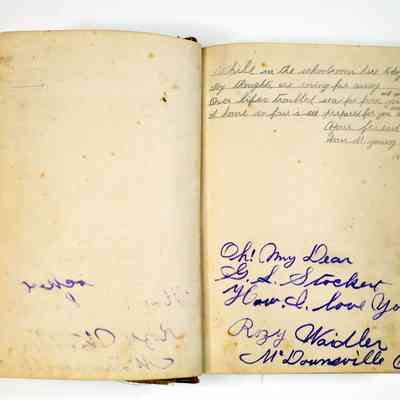 While in the schoolroom here today
My thoughts are roving far away
Over life's troubled sea far from
A home so fair is prepared for you
Your friend
young
Oh! My Dear
G. L. Stockert
How I love Yo
Rozy Waidler
McDounsville